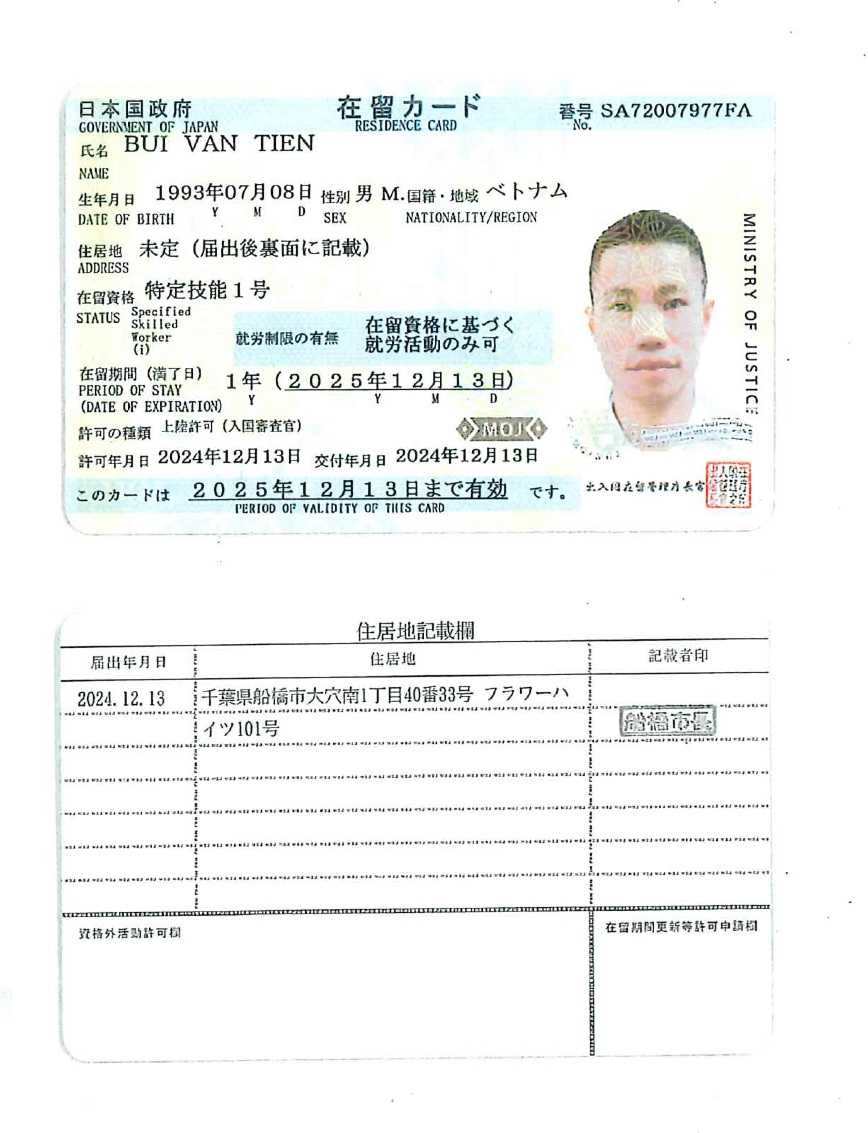 日本国政府 在留カード 番号 SA72007977FA
GOVERNMENT OF JAPAN RESIDENCE CARD No.
氏名 BUI VAN TIEN
NAME
生年月日 1993年07月08日 性別 男 M. 国籍・地域 ベトナム
DATE OF BIRTH Y M D SEX NATIONALITY/REGION
住居地 未定（届出後裏面に記載）
ADDRESS
在留資格 特定技能1号
STATUS Specified
Skilled
Worker
(i)
就労制限の有無 在留資格に基づく
就労活動のみ可
在留期間（満了日） 1年（2025年12月13日）
PERIOD OF STAY Y Y M D
(DATE OF EXPIRATION)
許可の種類 上陸許可（入国審査官）
MOJ
許可年月日 2024年12月13日 交付年月日 2024年12月13日
このカードは 2025年12月13日まで有効 です。
PERIOD OF VALIDITY OF THIS CARD
MINISTRY OF JUSTICE
出入国在留管理庁長官
住居地記載欄
届出年月日 住居地 記載者印
2024.12.13 千葉県船橋市大穴南1丁目40番33号 フラワーハ
イツ101号 船橋市長
資格外活動許可欄 在留期間更新等許可申請欄